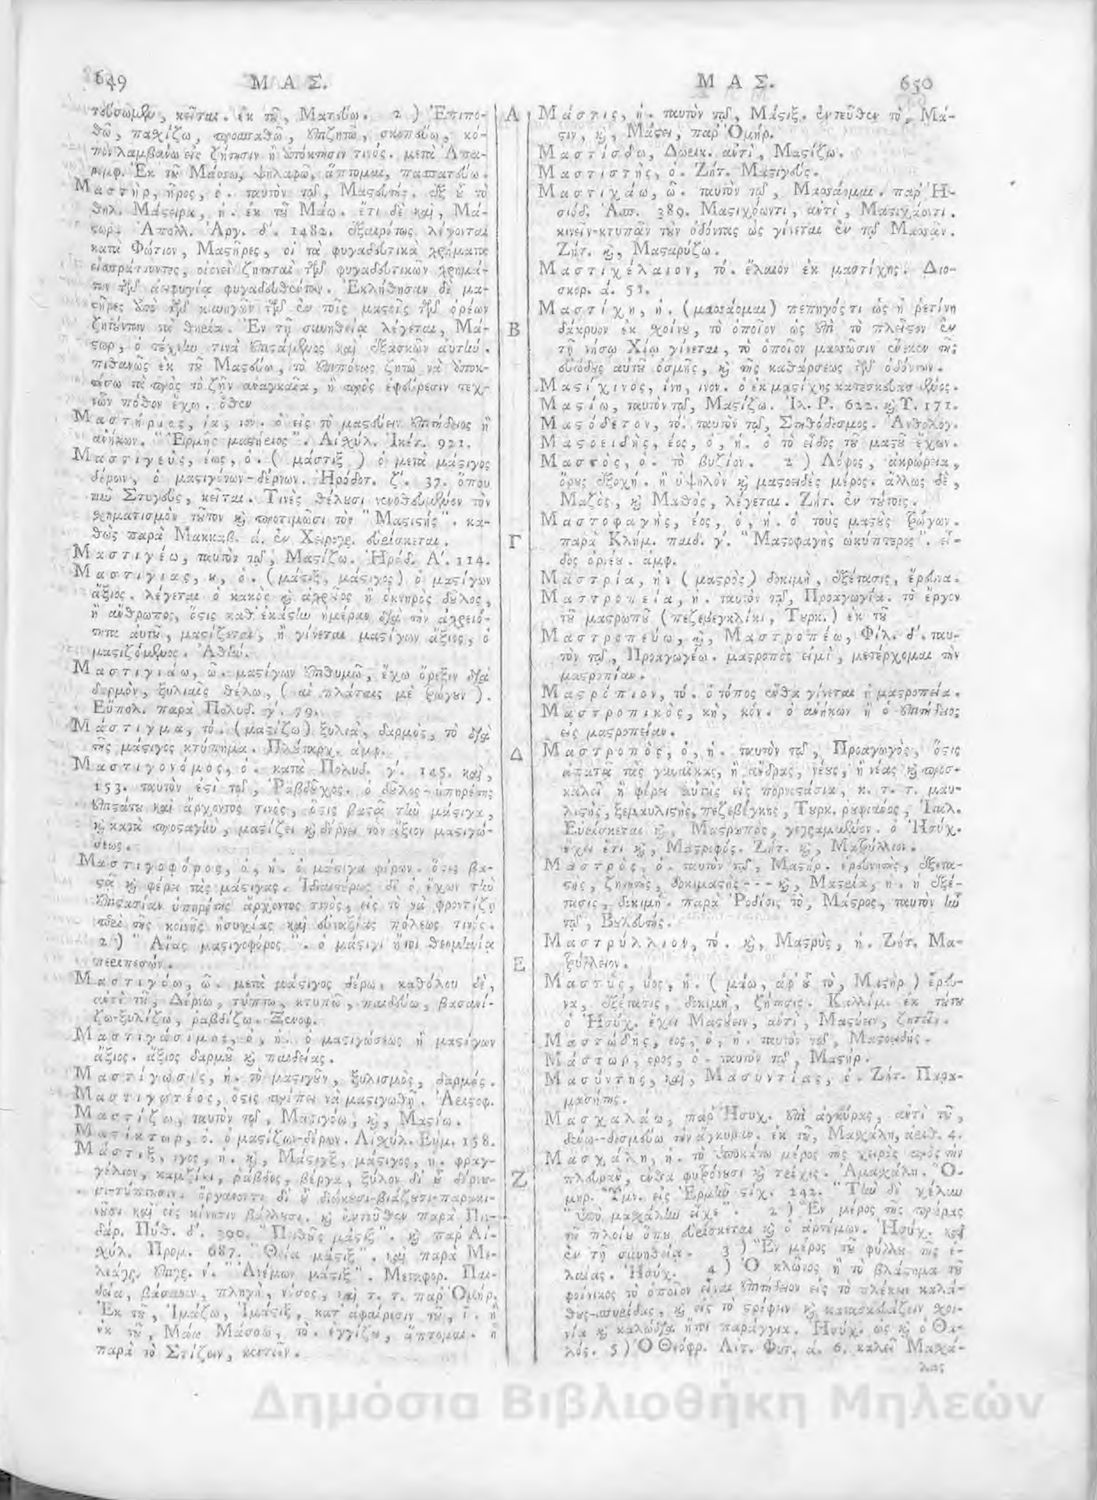 649 ΜΑΣ.
ματεύω. 2) Ἐπιπο-
θῶ, παχίζω, προσπαθῶ, ἐπιζητῶ, σκοπεύω, κό-
πον λαμβάνω εἰς ζήτησιν ἢ ἀπόκτησιν τινός. μετὰ Ἀπα-
ρεμφ. Ἐκ τοῦ Μάσσω, ψηλαφῶ, ἅπτομαι, πασπατεύω.
Μαστὴρ, ῆρος, ὁ. ταυτὸν τῷ, Μαστευτής. ἐξ οὗ τὸ
θηλ. Μάστειρα, ἡ. ἐκ τοῦ Μάω. ἔτι δὲ καὶ, Μά-
στωρ. Ἀπολλ. Ἀργ. δ'. 1482. ἐξαιρέτως λέγονται
κατὰ Φώτιον, Μαστῆρες, οἱ τὰ φυγαδευτικὰ χρήματα
εἰσπράττοντες, οἱονεὶ ζητηταὶ τῶν φυγαδευτικῶν χρημά-
των τῶν φυγαδευθέντων. Ἐκλήθησαν δὲ μα-
στῆρες ὑπὸ τῶν κυνηγῶν τῶν ἐν τοῖς μαστοῖς τῶν ὀρέων
ζητούντων τὰ θηρία. Ἐν τῇ συνηθείᾳ λέγεται, Μά-
στωρ, ὁ τέχνην τινὰ ἐπιστάμενος καὶ ἐξασκῶν αὐτήν.
πιθανῶς ἐκ τοῦ Μαστεύω, τὸ ἐπιπόνως ζητῶ νὰ ἀποκ-
τήσω τὰ πρὸς τὸ ζῆν ἀναγκαῖα, ἢ πρὸς ἐφεύρεσιν τεχ-
νῶν πόθον ἔχω. ὅθεν
Μαστήριος, ία, ιον. ὁ εἰς τὸ μαστεύειν ἐπιτήδειος ἢ
ἀνήκων. "Ἑρμῆς μαστήριος". Αἰσχύλ. Ἱκέτ. 921.
Μαστιγεὺς, έως, ὁ. (μάστιξ) ὁ μετὰ μάστιγος
δέρων, ὁ μαστιγόνων-δέρνων. Ἡρόδοτ. ζ'. 37. ὅπου
νῦν Στυγεὺς, κεῖται. Τινὲς θέλουσι νενοθευμένον τὸν
σχηματισμὸν τοῦτον καὶ προτιμῶσι τὸν "Μαστιστής". κα-
θὼς παρὰ Μακκαβ. ἀ. ἐν Χειρογρ. εὑρίσκεται.
Μαστιγέω, ταυτὸν τῷ, Μαστίζω. Ἡρόδ. Α'. 114.
Μαστιγίας, ου, ὁ. (μάστιξ, μάστιγος) ὁ μαστίγων
ἄξιος. λέγεται ὁ κακὸς καὶ ἀχρεῖος ἢ ὀκνηρὸς δοῦλος,
ἢ ἄνθρωπος, ὅστις καθ' ἑκάστην ἡμέραν διὰ τὴν ἀχρειό-
τητα αὐτοῦ, μαστίζεται, ἢ γίνεται μαστίγων ἄξιος, ὁ
μαστιζόμενος. Ἀθήν.
Μαστιγιάω, ῶ. μαστίγων ἐπιθυμῶ, ἔχω ὄρεξιν διὰ
δαρμὸν, ξυλιαῖς θέλω, (αἱ πλάταις μὲ τρώγουν).
Εὔπολ. παρὰ Πολυδ. γ'. 79.
Μάστιγμα, τό. (μαστίζω) ξυλιὰ, δαρμὸς, τὸ διὰ
τῆς μάστιγος κτύπημα. Πλούταρχ. ἀμφ.
Μαστιγονόμος, ὁ. κατὰ Πολυδ. γ'. 145. καὶ,
153. ταυτὸν ἐστι τῷ, Ῥαβδοῦχος. ὁ δοῦλος-ὑπηρέτης
ἐπιστάτου καὶ ἄρχοντος τινὸς, ὅστις βαστᾷ τὴν μάστιγα,
καὶ κατὰ προσταγὴν, μαστίζει καὶ δέρνει τὸν ἄξιον μαστιγώ-
σεως.
Μαστιγοφόρος, ὁ, ἡ. ὁ μάστιγα φέρων. ὅστις βα-
στᾷ καὶ φέρει τὰς μάστιγας. Ἰδιαιτέρως δὲ ὁ ἔχων τὴν
ἐπιστασίαν ὑπηρέτης ἄρχοντος τινὸς, εἰς τὸ νὰ φροντίζῃ
περὶ τῆς κοινῆς ἡσυχίας καὶ εὐταξίας πόλεως τινός.
2) "Αἴας μαστιγοφόρος". ὁ μάστιγι ἤτοι θεομηνίᾳ
περιπεσών.
Μαστιγόω, ῶ. μετὰ μάστιγος δέρω. καθόλου δὲ,
ἀντὶ τοῦ, Δέρνω, τύπτω, κτυπῶ, παιδεύω, βασανί-
ζω-ξυλίζω, ῥαβδίζω. Ξενοφ.
Μαστιγώσιμος, ὁ, ἡ. ὁ μαστιγώσεως ἢ μαστίγων
ἄξιος. ἄξιος δαρμοῦ καὶ παιδείας.
Μαστίγωσις, ἡ. τὸ μαστιγοῦν, ξυλισμὸς, δαρμός.
Μαστιγωτέος, ὅστις πρέπει νὰ μαστιγωθῇ. Ἀριστοφ.
Μαστίζω, ταυτὸν τῷ, Μαστιγόω, καὶ, Μαστίω.
Μαστίκτωρ, ὁ. ὁ μαστίζων-δέρων. Αἰσχύλ. Εὐμ. 158.
Μάστιξ, ιγος, ἡ. καὶ, Μάστιγξ, μάστιγος, ἡ. φραγ-
γέλιον, καμζίκι, ῥάβδος, βέργα, ξύλον δι' οὗ δέρνου-
σι-τύπτουσιν. ὄργανόν τι δι' οὗ διώκουσι-βιάζουσι-παρακι-
νοῦσι καὶ εἰς κίνησιν βάλλουσι. καὶ ἐντεῦθεν παρὰ Πιν-
δάρ. Πυθ. δ'. 390. "Πειθοῦς μάστιξ". καὶ παρ' Αἰ-
σχύλ. Προμ. 687. "Θεία μάστιξ". καὶ παρὰ Με-
λεάγρ. ἐπιγρ. ν'. "Ἀνέμων μάστιξ". Μεταφορ. Παι-
δεία, βάσανον, πληγὴ, νόσος, καὶ τ. τ. παρ' Ὁμήρ.
Ἐκ τοῦ, Ἱμάζω, Ἱμάστιξ, κατ' ἀφαίρεσιν τοῦ, ι. ἢ
ἐκ τοῦ, Μάω Μάσσω, τὸ. ἐγγίζω, ἅπτομαι. ἢ
παρὰ τὸ Στίζειν, κεντεῖν.
Α
Β
Γ
Δ
Ε
Ζ
ΜΑΣ. 650
Μάστις, ἡ. ταυτὸν τῷ, Μάστιξ. ἐντεῦθεν τὸ, Μά-
στιν, καὶ, Μάστει, παρ' Ὁμήρ.
Μαστίσδω, Δωρικ. αὐτὶ, Μαστίζω.
Μαστιστὴς, ὁ. Ζήτ. Μαστιγεύς.
Μαστιχάω, ῶ. ταυτὸν τῷ, Μασσάομαι. παρ' Ἡ-
σιόδ. Ἀσπ. 389. Μαστιχόωντι, αὐτὶ, Μαστιχάοντι.
κινεῖν-κτυπᾶν τοὺς ὀδόντας ὡς γίνεται ἐν τῷ Μασσᾶν.
Ζήτ. καὶ, Μασταρύζω.
Μαστιχέλαιον, τό. ἔλαιον ἐκ μαστίχης. Διο-
σκορ. ἀ. 51.
Μαστίχη, ἡ. (μασσάομαι) πεπηγός τι ὡς ἡ ῥετίνη
δάκρυον ἐκ σχοίνου, τὸ ὁποῖον ὡς ἐπὶ τὸ πλεῖστον ἐν
τῇ νήσῳ Χίῳ γίνεται, τὸ ὁποῖον μασσῶσιν ἕνεκεν τῆς
εὐώδους αὐτοῦ ὀσμῆς, καὶ τῆς καθάρσεως τῶν ὀδόντων.
Μαστίχινος, ίνη, ινον. ὁ ἐκ μαστίχης κατεσκευασμένος.
Μαστίω, ταυτὸν τῷ, Μαστίζω. Ἰλ. Ρ. 622. καὶ Υ. 171.
Μαστόδετον, τό. ταυτὸν τῷ, Στηθόδεσμος. Ἀνθολογ.
Μαστοειδὴς, έος, ὁ, ἡ. ὁ τὸ εἶδος τοῦ μαστοῦ ἔχων.
Μαστὸς, ὁ. τὸ βυζίον. 2) Λόφος, ἀκρώρεια,
ὄρους ἐξοχή. ἢ ὑψηλὸν καὶ μαστοειδὲς μέρος. ἄλλως δὲ,
Μαζὸς, καὶ Μασθὸς, λέγεται. Ζήτ. ἐν τούτοις.
Μαστοφαγὴς, έος, ὁ, ἡ. ὁ τοὺς μαστοὺς τρώγων.
παρὰ Κλήμ. παιδ. γ'. "Μαστοφαγὴς ὠκύπτερος". εἶ-
δος ὀρνέου. ἀμφ.
Μαστρία, ἡ. (μαστρὸς) δοκιμὴ, ἐξέτασις, ἔρευνα.
Μαστροπεία, ἡ. ταυτὸν τῷ, Προαγωγία. τὸ ἔργον
τοῦ μαστρωποῦ (πεζεβεγκλίκι, Τουρκ.) ἐκ τοῦ
Μαστροπεύω, καὶ, Μαστροπέω, Φίλ. δ'. ταυ-
τὸν τῷ, Προαγωγέω. μαστροπὸς εἰμὶ, μετέρχομαι τὴν
μαστροπίαν.
Μαστρόπιον, τό. ὁ τόπος ἔνθα γίνεται ἡ μαστροπεία.
Μαστροπικὸς, κὴ, κόν. ὁ ἀνήκων ἢ ὁ ἐπιτήδειος
εἰς μαστροπείαν.
Μαστροπὸς, ὁ, ἡ. ταυτὸν τῷ, Προαγωγὸς, ὅστις
ἀπατᾷ τὰς γυναῖκας, ἢ ἄνδρας, νέους, ἢ νέας καὶ προσ-
καλεῖ ἢ φέρει αὐτοὺς εἰς πορνοστάσια, κ. τ. τ. μαυ-
λιστὴς, ξεμαυλιστὴς, πεζεβέγκης, Τουρκ. ῥουφιάνος, Ἰταλ.
Εὑρίσκεται καὶ, Μαστρωπὸς, γεγραμμένον. ὁ Ἡσύχ.
ἔχει ἔτι καὶ, Μαστριφός. Ζήτ. καὶ, Μαστρύλλιον.
Μαστρὸς, ὁ. ταυτὸν τῷ, Μαστήρ. ἐρευνητὴς, ἐξετα-
στὴς, ζητητὴς, δοκιμαστὴς--- καὶ, Μαστεία, ἡ. ἡ ἐξέ-
τασις, δοκιμή. παρὰ Ῥοδίοις τὸ, Μάστρος, ταυτὸν ἦν
τῷ, Βουλευτής.
Μαστρύλλιον, τό. καὶ, Μαστρὺς, ἡ. Ζήτ. Μα-
τρύλλειον.
Μαστὺς, ύος, ἡ. (μάω, ἀφ' οὗ τὸ, Μαστήρ) ἔρευ-
να, ἐξέτασις, δοκιμὴ, ζήτησις. Καλλίμ. ἐκ τούτου
ὁ Ἡσύχ. ἔχει Μαστύειν, αὐτὶ, Μαστύει, ζητεῖ.
Μαστώδης, εος, ὁ, ἡ. ταυτὸν τῷ, Μαστοειδής.
Μάστωρ, ορος, ὁ. ταυτὸν τῷ, Μαστήρ.
Μασύντης, καὶ, Μασυντίας, ὁ. Ζήτ. Παρα-
μασήτης.
Μασχαλάω, παρ' Ἡσυχ. ἐπὶ ἀγκύρας, αὐτὶ τοῦ,
δένω--δεσμεύω τὴν ἄγκυραν. ἐκ τοῦ, Μασχάλη, ἀριθ. 4.
Μασχάλη, ἡ. τὸ ὑποκάτω μέρος τῆς χειρὸς πρὸς τὴν
πλευρὰν, ἔνθα φυτρόνουσι καὶ τρίχες. Ἀμασχάλη. Ὁ-
μηρ. Ὕμν. εἰς Ἑρμῆν στίχ. 242. "Τὴν δὲ χέλυν
ὑπὸ μασχάλην εἶχε". 2) Ἓν μέρος τῆς πρώρας
τοῦ πλοίου ὅπου εὑρίσκεται καὶ ὁ ἀρτέμων. Ἡσύχ. καὶ
ἐν τῇ συνηθείᾳ. 3) Ἓν μέρος τοῦ φύλλου τῆς ἐ-
λαίας. Ἡσύχ. 4) Ὁ κλῶνος ἢ τὸ βλάστημα τοῦ
φοίνικος τὸ ὁποῖον εἶναι ἐπιτήδειον εἰς τὸ πλέκειν καλά-
θους-σπυρίδας, καὶ εἰς τὸ στρέφειν καὶ κατασκευάζειν σχοι-
νία καὶ καλώδια ἤτοι παράγγια. Ἡσύχ. ὡς καὶ ὁ Θα-
λός. 5) Ὁ Θεόφρ. Αἰτ. Φυτ. ἀ. 6. καλεῖ Μασχά-
λας
Δημόσια Βιβλιοθήκη Μηλεών